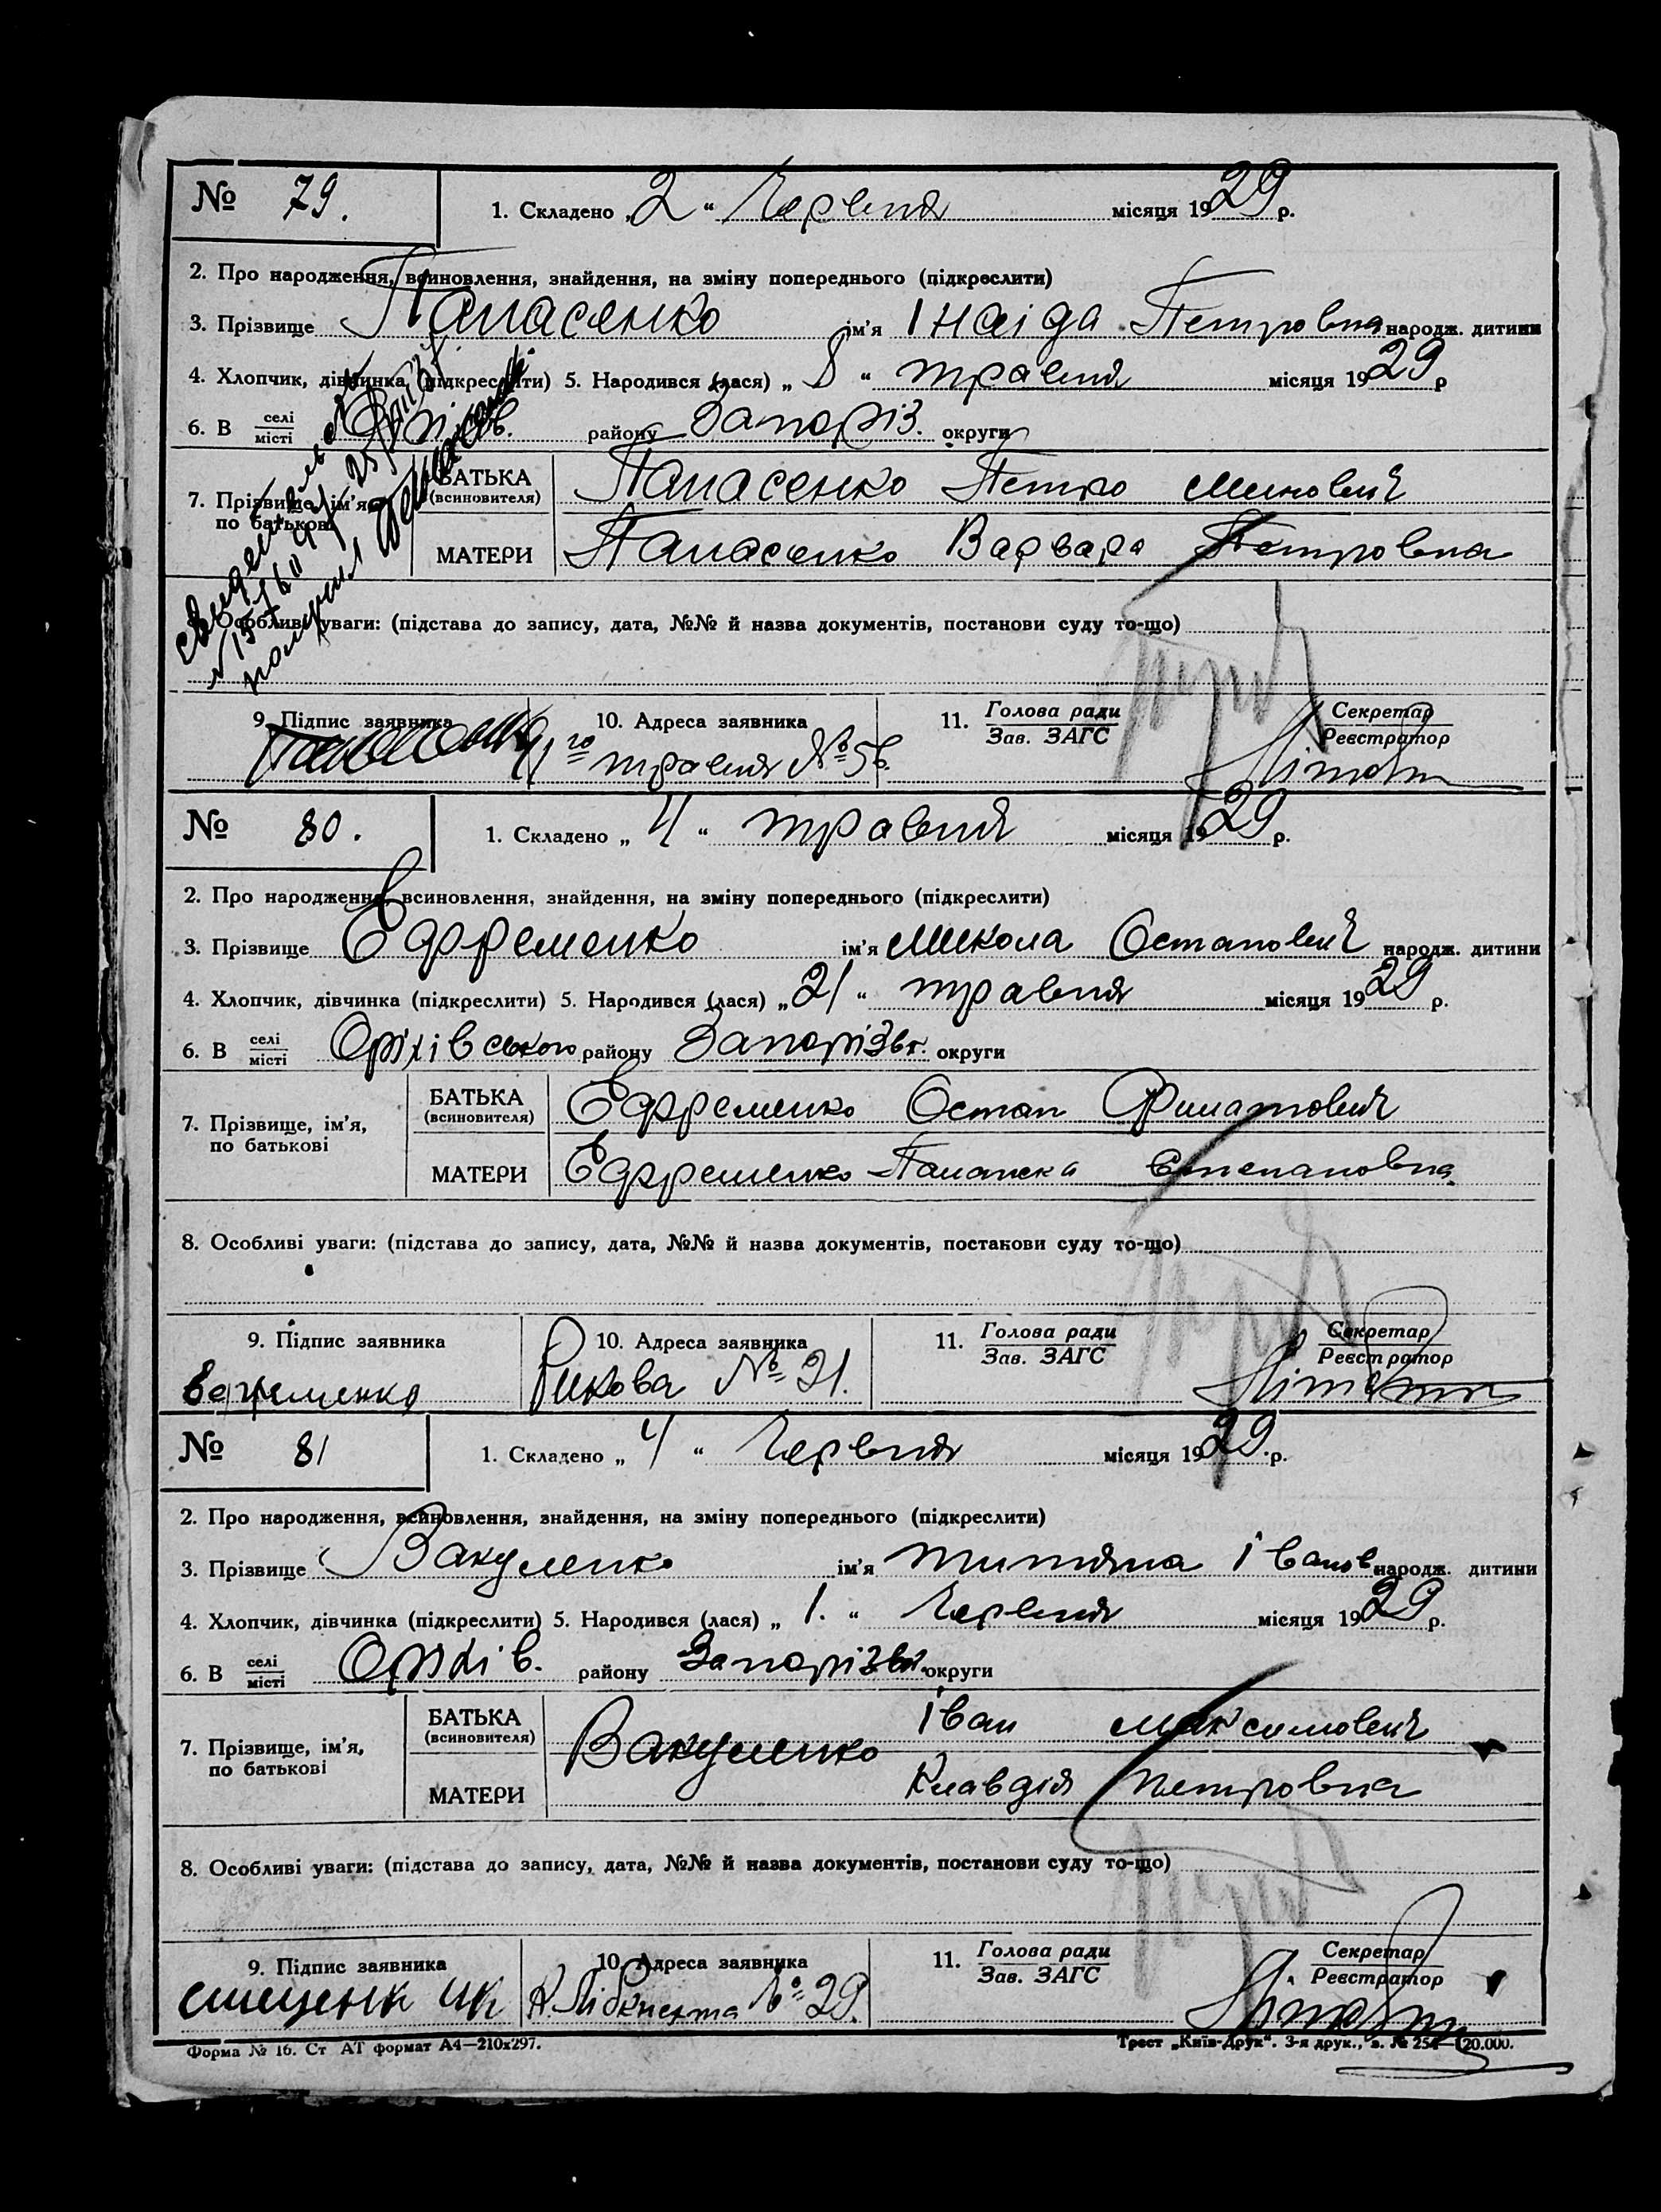 № 79. 1. Складено „2“ Червня місяця 1929 р.
2. Про народження, всиновлення, знайдення, на зміну попереднього (підкреслити)
3. Прізвище Панасенко ім'я Інаіда Петровна народж. дитини
4. Хлопчик, дівчинка (підкреслити) 5. Народився (лася) „8“ травня місяця 1929 р
6. В селі місті Оріхів. району Запоріз. округи
7. Прізвище, ім'я, по батькові
БАТЬКА (всиновителя) Панасенко Петро Минович
МАТЕРИ Панасенко Варвара Петровна
Особливі уваги: (підстава до запису, дата, №№ й назва документів, постанови суду то-що)
9. Підпис заявника 10. Адреса заявника 11. Голова ради Зав. ЗАГС Секретар Реєстратор
Панасенко 1го травня № 56.
№ 80. 1. Складено „4“ травня місяця 1929 р.
2. Про народження, всиновлення, знайдення, на зміну попереднього (підкреслити)
3. Прізвище Ефременко ім'я Микола Остапович народж. дитини
4. Хлопчик, дівчинка (підкреслити) 5. Народився (лася) „21“ травня місяця 1929 р.
6. В селі місті Оріхівського району Запорізьк. округи
7. Прізвище, ім'я, по батькові
БАТЬКА (всиновителя) Ефременко Остап Филатович
МАТЕРИ Ефременко Панаска Степановна
8. Особливі уваги: (підстава до запису, дата, №№ й назва документів, постанови суду то-що)
9. Підпис заявника 10. Адреса заявника 11. Голова ради Зав. ЗАГС Секретар Реєстратор
Ефременко Рикова № 21.
№ 81 1. Складено „4“ Червня місяця 1929 р.
2. Про народження, всиновлення, знайдення, на зміну попереднього (підкреслити)
3. Прізвище Вакуленко ім'я Титяна Іванов народж. дитини
4. Хлопчик, дівчинка (підкреслити) 5. Народився (лася) „1.“ Червня місяця 1929 р.
6. В селі місті Оріхів. району Запорізьк. округи
7. Прізвище, ім'я, по батькові
БАТЬКА (всиновителя) Вакуленко Іван Максимович
МАТЕРИ Клавдія Петровна
8. Особливі уваги: (підстава до запису, дата, №№ й назва документів, постанови суду то-що)
9. Підпис заявника 10. Адреса заявника 11. Голова ради Зав. ЗАГС Секретар Реєстратор
К. Лібкнехта № 29.
Форма № 16. Ст АТ формат А4—210х297. Трест „Київ-Друк“. 3-я друк., з. № 254—120.000.